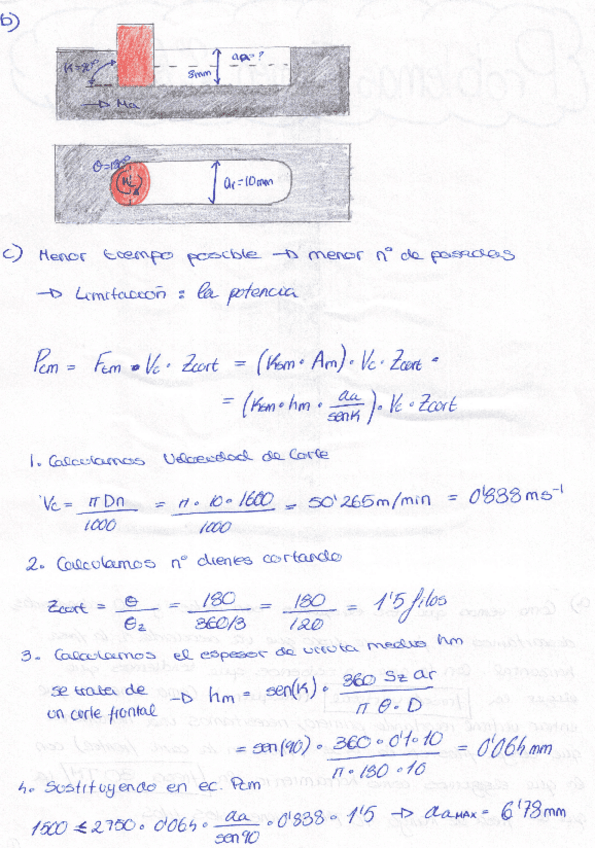 b)
aa = ?
8mm
Ma
θ=180º
ar = 10mm
c) Menor tiempo posible → menor nº de pasadas
→ Limitación = la potencia
Pcm = Ftm • Vc • Zcort = (Ksm • Am) • Vc • Zcort =
= (Ksm • hm • aa / senK) • Vc • Zcort
1. Calculamos Velocidad de Corte
Vc = πDn / 1000 = π • 10 • 1600 / 1000 = 50'265 m/min = 0'838 ms⁻¹
2. Calculamos nº dienes cortando
Zcort = θ / θz = 180 / 360/3 = 180 / 120 = 1'5 filos
3. Calculamos el espesor de viruta medio hm
se trata de un corte frontal → hm = sen(K) • 360 Sz ar / π θ • D
= sen(90) • 360 • 0'1 • 10 / π • 180 • 10 = 0'064 mm
4. Sustituyendo en ec. Pcm
1500 ≤ 2750 • 0'064 • aa / sen90 • 0'838 • 1'5 → aaMAX = 6'78mm